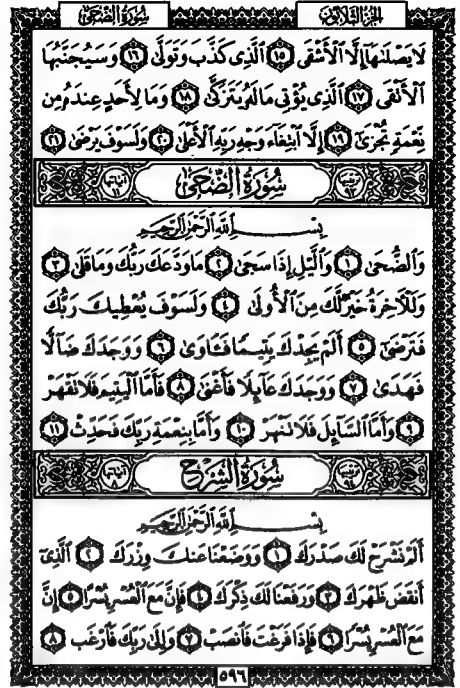 سُورَةُ الضُّحَىٰ الجُزْءُ الثَّلَاثُونَ
لَا يَصْلَىٰهَآ إِلَّا ٱلْأَشْقَى ١٥ ٱلَّذِى كَذَّبَ وَتَوَلَّىٰ ١٦ وَسَيُجَنَّبُهَا
ٱلْأَتْقَى ١٧ ٱلَّذِى يُؤْتِى مَالَهُۥ يَتَزَكَّىٰ ١٨ وَمَا لِأَحَدٍ عِندَهُۥ مِن
نِّعْمَةٍ تُجْزَىٰٓ ١٩ إِلَّا ٱبْتِغَآءَ وَجْهِ رَبِّهِ ٱلْأَعْلَىٰ ٢٠ وَلَسَوْفَ يَرْضَىٰ ٢١
ترتيبها ٩٣ سُورَةُ الضُّحَىٰ آياتها ١١
بِسْمِ ٱللَّهِ ٱلرَّحْمَٰنِ ٱلرَّحِيمِ
وَٱلضُّحَىٰ ١ وَٱلَّيْلِ إِذَا سَجَىٰ ٢ مَا وَدَّعَكَ رَبُّكَ وَمَا قَلَىٰ ٣
وَلَلْءَاخِرَةُ خَيْرٌ لَّكَ مِنَ ٱلْأُولَىٰ ٤ وَلَسَوْفَ يُعْطِيكَ رَبُّكَ
فَتَرْضَىٰٓ ٥ أَلَمْ يَجِدْكَ يَتِيمًا فَـَٔاوَىٰ ٦ وَوَجَدَكَ ضَآلًّا
فَهَدَىٰ ٧ وَوَجَدَكَ عَآئِلًا فَأَغْنَىٰ ٨ فَأَمَّا ٱلْيَتِيمَ فَلَا تَقْهَرْ
٩ وَأَمَّا ٱلسَّآئِلَ فَلَا تَنْهَرْ ١٠ وَأَمَّا بِنِعْمَةِ رَبِّكَ فَحَدِّثْ ١١
ترتيبها ٩٤ سُورَةُ الشَّرْحِ آياتها ٨
بِسْمِ ٱللَّهِ ٱلرَّحْمَٰنِ ٱلرَّحِيمِ
أَلَمْ نَشْرَحْ لَكَ صَدْرَكَ ١ وَوَضَعْنَا عَنكَ وِزْرَكَ ٢ ٱلَّذِىٓ
أَنقَضَ ظَهْرَكَ ٣ وَرَفَعْنَا لَكَ ذِكْرَكَ ٤ فَإِنَّ مَعَ ٱلْعُسْرِ يُسْرًا ٥ إِنَّ
مَعَ ٱلْعُسْرِ يُسْرًا ٦ فَإِذَا فَرَغْتَ فَٱنصَبْ ٧ وَإِلَىٰ رَبِّكَ فَٱرْغَب ٨
٥٩٦